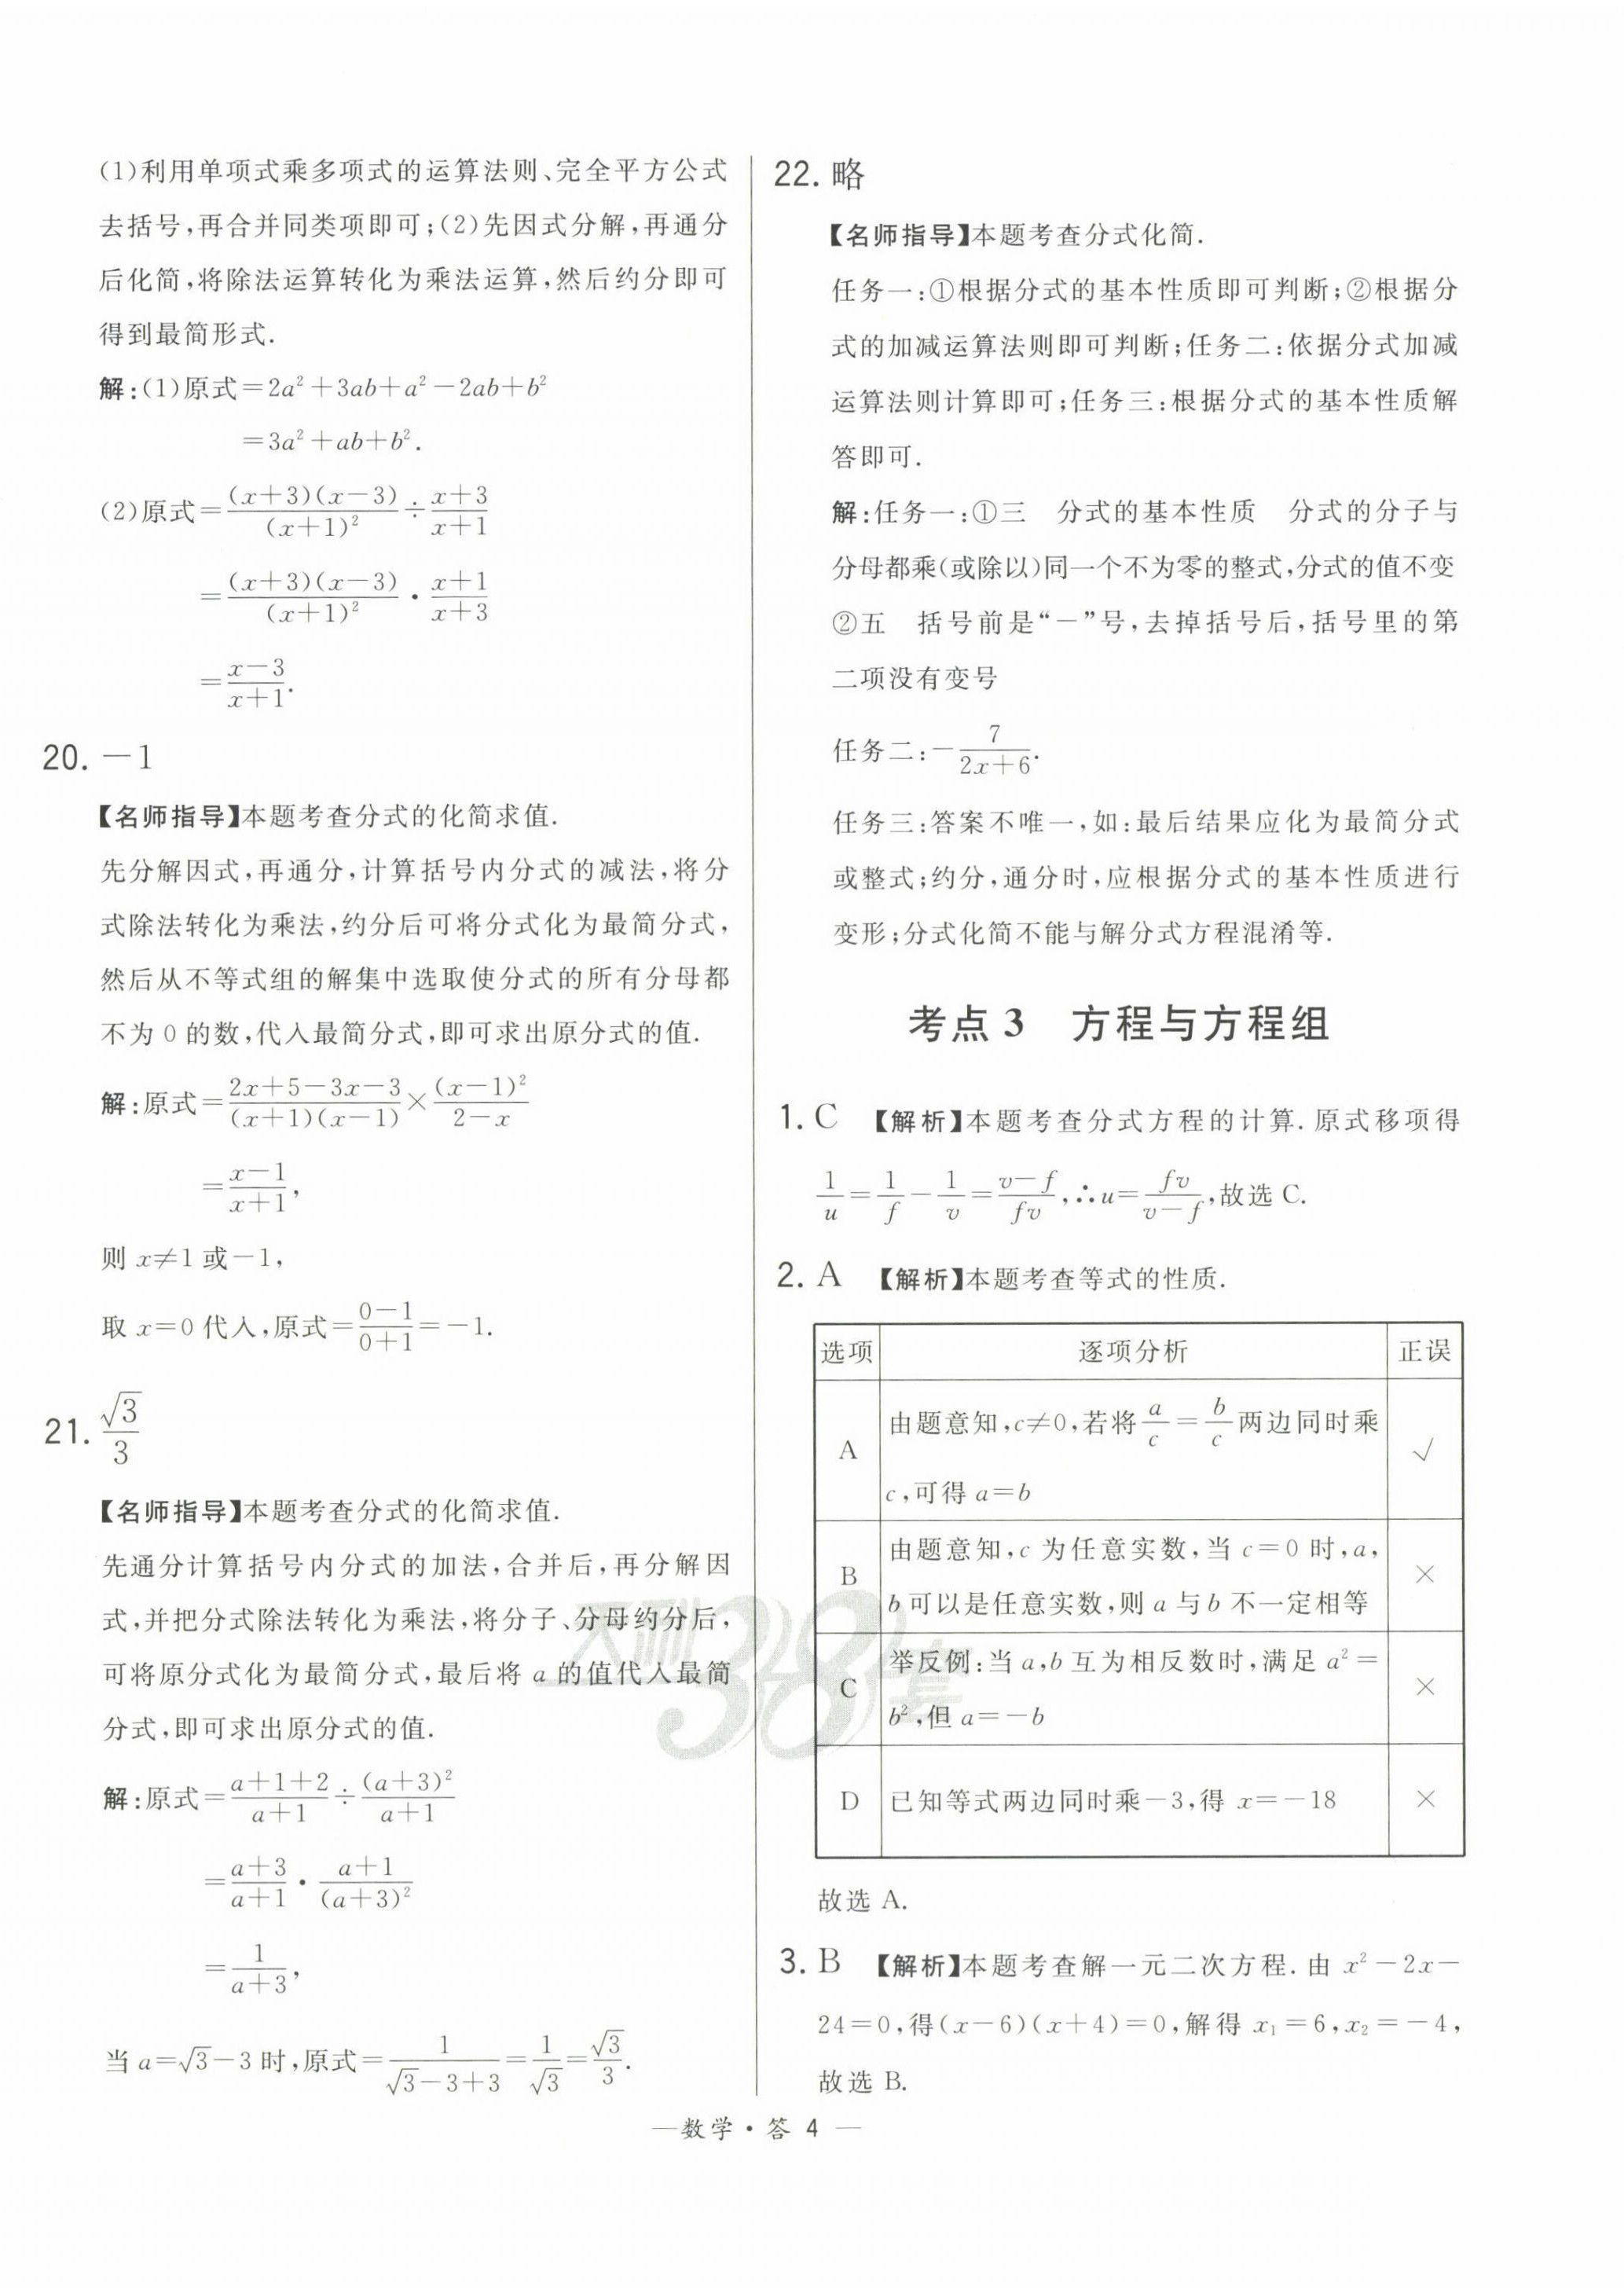 (1)利用单项式乘多项式的运算法则、完全平方公式
去括号,再合并同类项即可;(2)先因式分解,再通分
后化简,将除法运算转化为乘法运算,然后约分即可
得到最简形式.
解:(1)原式=2a²+3ab+a²-2ab+b²
=3a²+ab+b².
(2)原式=\frac{(x+3)(x-3)}{(x+1)²}÷\frac{x+3}{x+1}
=\frac{(x+3)(x-3)}{(x+1)²}·\frac{x+1}{x+3}
=\frac{x-3}{x+1}.
20. -1
【名师指导】本题考查分式的化简求值.
先分解因式,再通分,计算括号内分式的减法,将分
式除法转化为乘法,约分后可将分式化为最简分式,
然后从不等式组的解集中选取使分式的所有分母都
不为 0 的数,代入最简分式,即可求出原分式的值.
解:原式=\frac{2x+5-3x-3}{(x+1)(x-1)}×\frac{(x-1)²}{2-x}
=\frac{x-1}{x+1},
则 x≠1 或-1,
取 x=0 代入,原式=\frac{0-1}{0+1}=-1.
21. \frac{√3}{3}
【名师指导】本题考查分式的化简求值.
先通分计算括号内分式的加法,合并后,再分解因
式,并把分式除法转化为乘法,将分子、分母约分后,
可将原分式化为最简分式,最后将 a 的值代入最简
分式,即可求出原分式的值.
解:原式=\frac{a+1+2}{a+1}÷\frac{(a+3)²}{a+1}
=\frac{a+3}{a+1}·\frac{a+1}{(a+3)²}
=\frac{1}{a+3},
当 a=√3-3 时,原式=\frac{1}{√3-3+3}=\frac{1}{√3}=\frac{√3}{3}.
22. 略
【名师指导】本题考查分式化简.
任务一:①根据分式的基本性质即可判断;②根据分
式的加减运算法则即可判断;任务二:依据分式加减
运算法则计算即可;任务三:根据分式的基本性质解
答即可.
解:任务一:①三　分式的基本性质　分式的分子与
分母都乘(或除以)同一个不为零的整式,分式的值不变
②五　括号前是“-”号,去掉括号后,括号里的第
二项没有变号
任务二:-\frac{7}{2x+6}.
任务三:答案不唯一,如:最后结果应化为最简分式
或整式;约分,通分时,应根据分式的基本性质进行
变形;分式化简不能与解分式方程混淆等.
考点 3　方程与方程组
1. C　【解析】本题考查分式方程的计算. 原式移项得
\frac{1}{u}=\frac{1}{f}-\frac{1}{v}=\frac{v-f}{fv},∴u=\frac{fv}{v-f},故选 C.
2. A　【解析】本题考查等式的性质.
选项　逐项分析　正误
A　由题意知,c≠0,若将\frac{a}{c}=\frac{b}{c}两边同时乘
c,可得 a=b　√
B　由题意知,c 为任意实数,当 c=0 时,a,
b 可以是任意实数,则 a 与 b 不一定相等　×
C　举反例:当 a,b 互为相反数时,满足 a²=
b²,但 a=-b　×
D　已知等式两边同时乘-3,得 x=-18　×
故选 A.
3. B　【解析】本题考查解一元二次方程. 由 x²-2x-
24=0,得(x-6)(x+4)=0,解得 x₁=6,x₂=-4,
故选 B.
天利38套
—数学·答 4 —